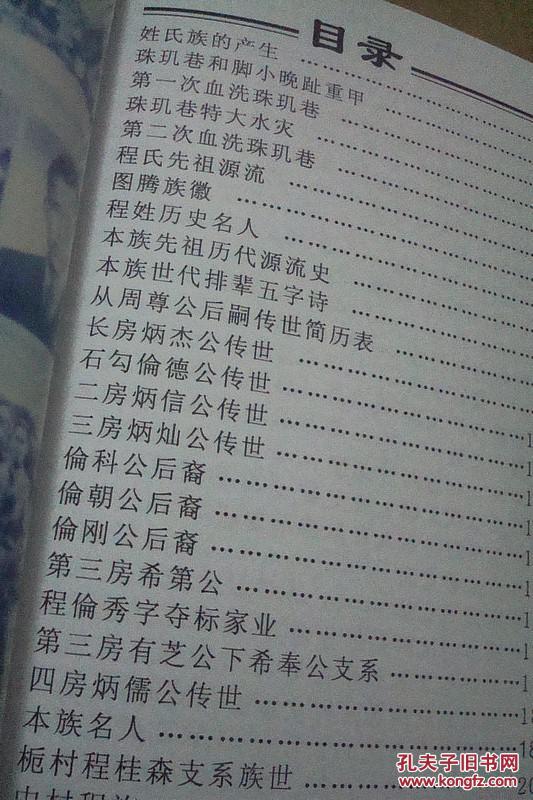 目录
姓氏族的产生
珠玑巷和脚小晚趾重甲
第一次血洗珠玑巷
珠玑巷特大水灾
第二次血洗珠玑巷
程氏先祖源流
图腾族徽
程姓历史名人
本族先祖历代源流史
本族世代排辈五字诗
从周尊公后嗣传世简历表
长房炳杰公传世
石勾倫德公传世
二房炳信公传世
三房炳灿公传世
倫科公后裔
倫朝公后裔
倫刚公后裔
第三房希第公
程倫秀字夺标家业
第三房有芝公下希奉公支系
四房炳儒公传世
本族名人
栀村程桂森支系族世
孔夫子旧书网
www.kongfz.com